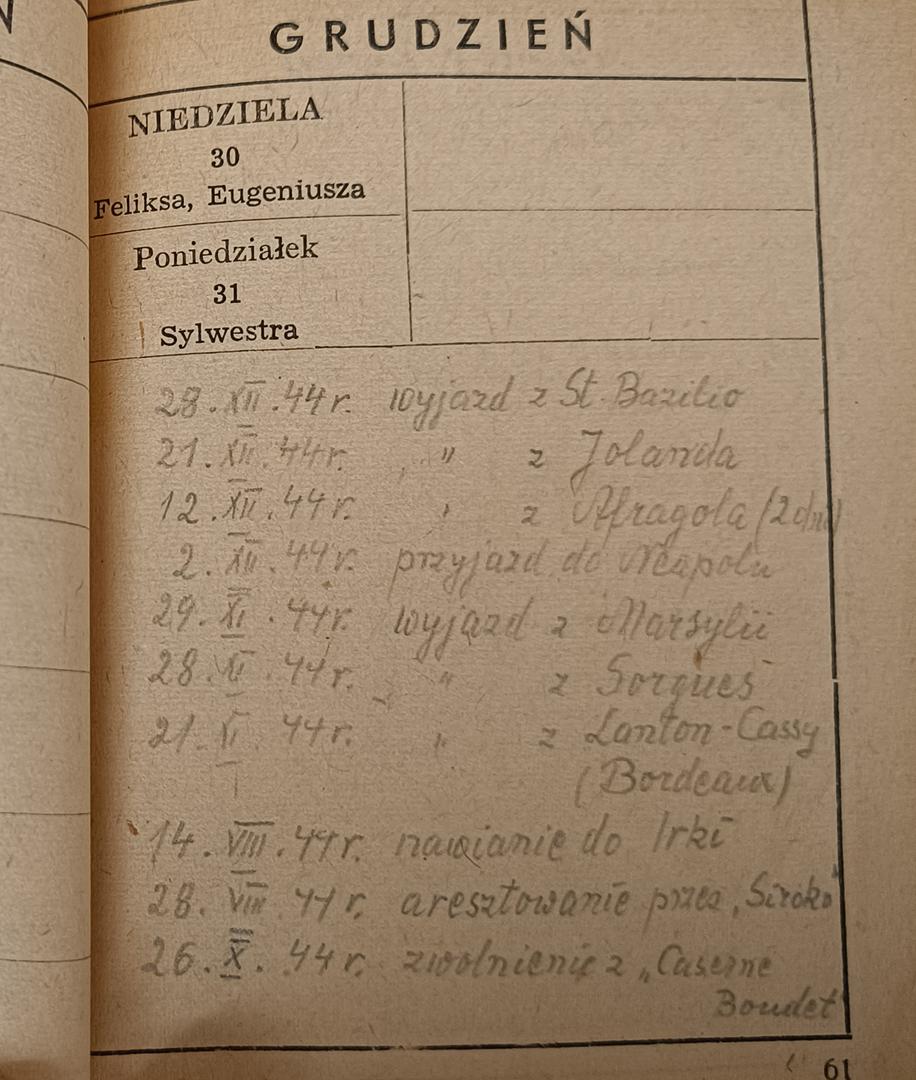 GRUDZIEŃ
NIEDZIELA
30
Feliksa, Eugeniusza
Poniedziałek
31
Sylwestra
28.XII.44r. wyjazd z St. Bazilio
21.XII.44r. " z Jolanda
12.XII.44r. " z Afragola (2 dni)
2.XII.44r. przyjazd do Neapolu
29.XI.44r. wyjazd z Marsylii
28.XI.44r. " z Sorgues
21.XI.44r. " z Lanton-Cassy
(Bordeaux)
14.VIII.44r. nawianie do Irki
28.VIII.44r. aresztowanie przez „Siroko"
26.X.44r. zwolnienie z „Caserne
Boudet"
61